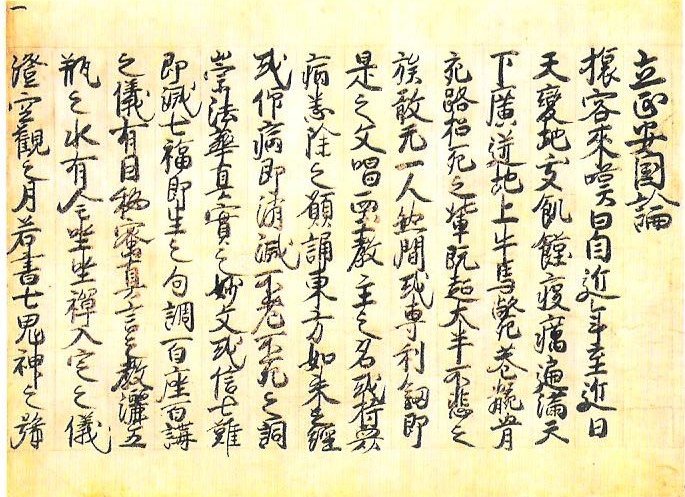 立正安国論
旅客來嘆曰自近年至近日
天變地夭飢饉疫癘遍滿天
下廣迸地上牛馬斃巷骸骨
充路招死之輩既超大半不悲之
族敢无一人然間或専利劔即
是之文唱西土教主之名或恃衆
病悉除之願誦東方如来之經
或仰病即消滅不老不死之詞
崇法華真實之妙文或信七難
即滅七福即生之句調百座百講
之儀有因秘密真言之教灑五
瓶之水有全坐禅入定之儀
澄空觀之月若書七鬼神之號
一